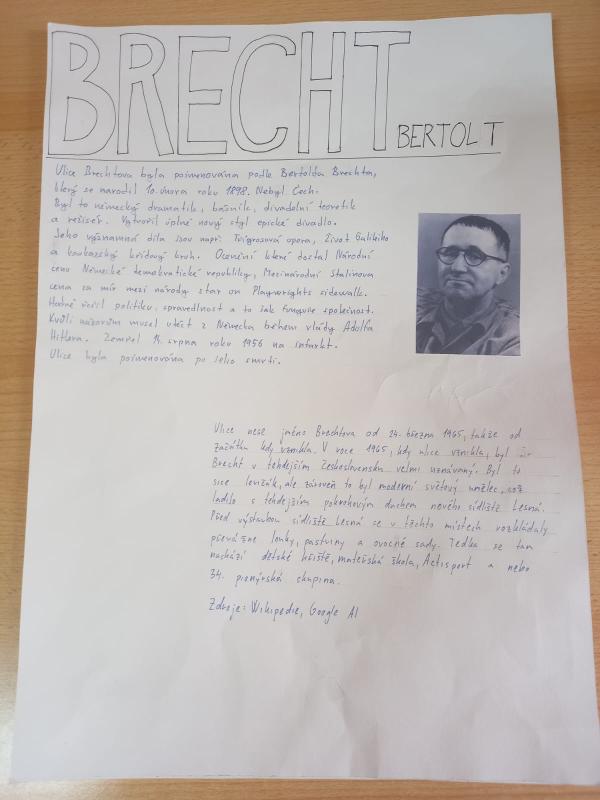 BRECHT
BERTOLT
Ulice Brechtova byla pojmenována podle Bertolta Brechta,
který se narodil 10. února roku 1898. Nebyl Čech.
Byl to německý dramatik, básník, divadelní teoretik
a režisér. Vytvořil úplně nový styl epické divadlo.
Jeho významná díla jsou např: Třígrošová opera, Život Galileiho
a kavkazský křídový kruh. Ocenění které dostal Národní
cenu Německé demokratické republiky, Mezinárodní Stalinova
cena za mír mezi národy star on Playwrights sidewalk.
Hodně řešil politiku, spravedlnost a to jak funguje společnost.
Kvůli názorům musel utéct z Německa během vlády Adolfa
Hitlera. Zemřel 14. srpna roku 1956 na infarkt.
Ulice byla pojmenována po jeho smrti.
Ulice nese jméno Brechtova od 24. března 1965, takže od
začátku kdy vznikla. V roce 1965, kdy ulice vznikla, byl
Brecht v tehdejším Československu velmi uznávaný. Byl to
sice levičák, ale zároveň to byl moderní světový umělec, což
ladilo s tehdejším pokrokovým duchem nového sídliště Lesná.
Před výstavbou sídliště Lesná se v těchto místech rozkládaly
převážně louky, pastviny a ovocné sady. Teďka se tam
nachází dětské hřiště, mateřská škola, Actisport a nebo
34. pionýrská skupina.
Zdroje: Wikipedie, Google AI